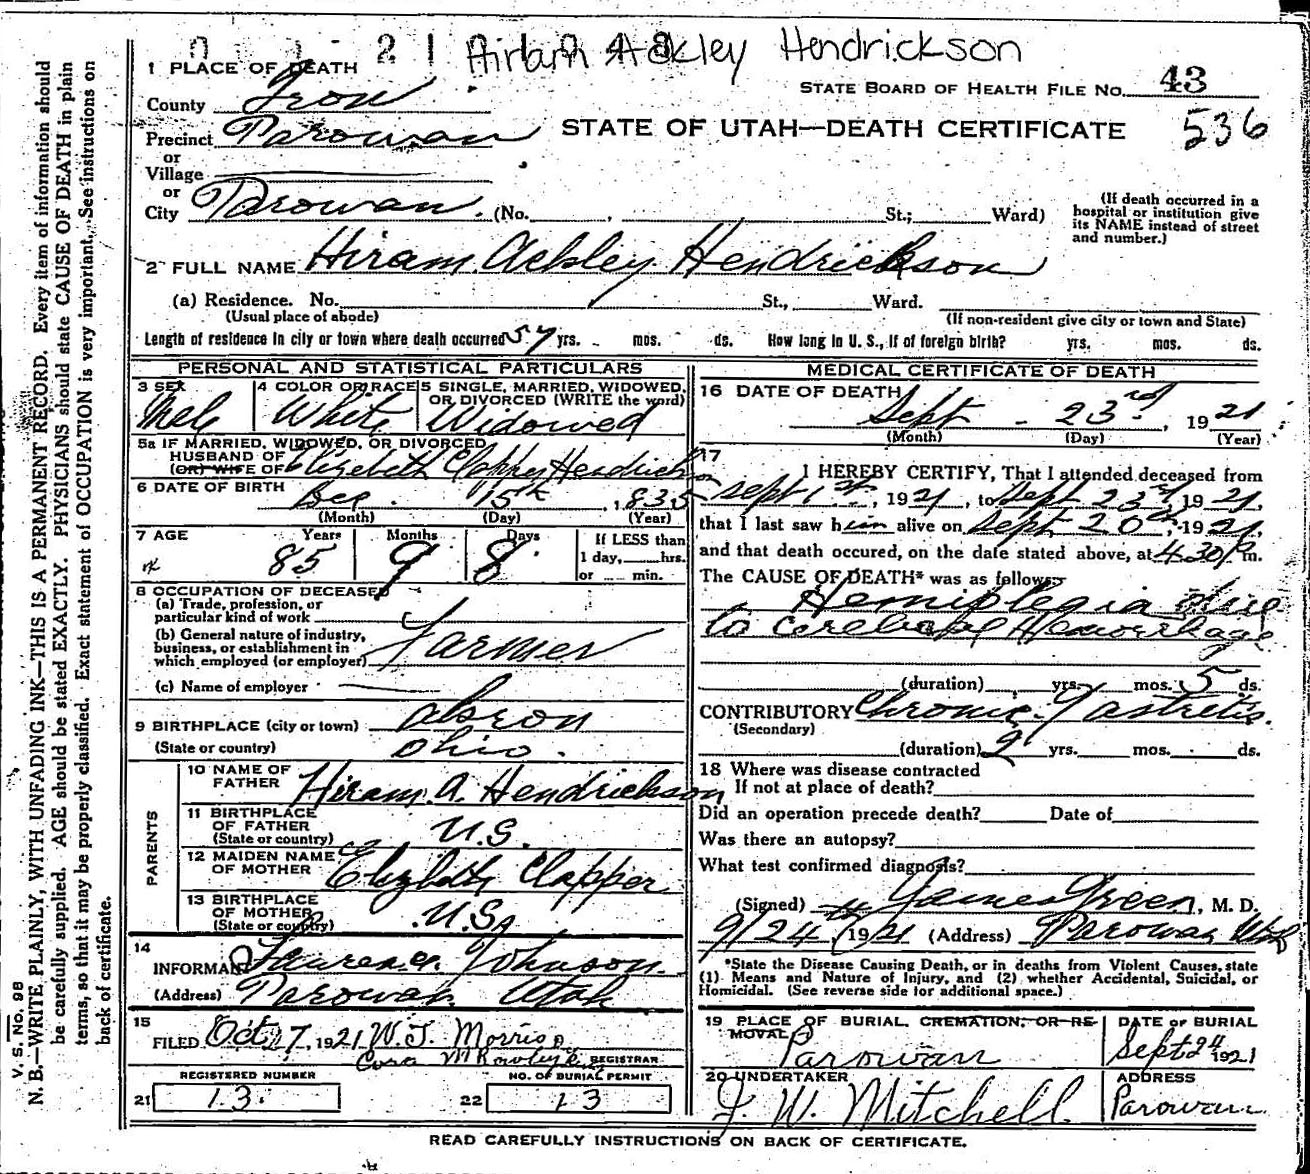 2 1 Hiram Ackley Hendrickson
1 PLACE OF DEATH
STATE BOARD OF HEALTH FILE NO. 43
County Iron
536
Precinct Parowan
STATE OF UTAH—DEATH CERTIFICATE
or
Village
or
City Parowan. (No. , St.; Ward)
(If death occurred in a
hospital or institution give
its NAME instead of street
and number.)
2 FULL NAME Hiram Ackley Hendrickson
(a) Residence. No. St., Ward.
(Usual place of abode)
(If non-resident give city or town and State)
Length of residence in city or town where death occurred 57 yrs. mos. ds. How long in U. S., if of foreign birth? yrs. mos. ds.
PERSONAL AND STATISTICAL PARTICULARS
3 SEX
Male
4 COLOR OR RACE
White
5 SINGLE, MARRIED, WIDOWED,
OR DIVORCED (WRITE the word)
Widowed
5a IF MARRIED, WIDOWED, OR DIVORCED
HUSBAND OF
(OR) WIFE OF Elizabeth Clapper Hendrickson
6 DATE OF BIRTH
Dec. 15th, 1835
(Month) (Day) (Year)
7 AGE
Years Months Days
85 9 8
If LESS than
1 day, hrs.
or min.
8 OCCUPATION OF DECEASED
(a) Trade, profession, or
particular kind of work
(b) General nature of industry,
business, or establishment in
which employed (or employer)
Farmer
(c) Name of employer
9 BIRTHPLACE (city or town) Akron
(State or country) Ohio.
PARENTS
10 NAME OF
FATHER Hiram A. Hendrickson
11 BIRTHPLACE
OF FATHER
(State or country) U.S.
12 MAIDEN NAME
OF MOTHER Elizabeth Clapper
13 BIRTHPLACE
OF MOTHER
(State or country) U.S.A
14
INFORMANT Johnson
(Address) Parowan Utah
15
FILED Oct 27, 1921 W. J. Morris
Cora M Rowley REGISTRAR
REGISTERED NUMBER
21 13
NO. OF BURIAL PERMIT
22 13
MEDICAL CERTIFICATE OF DEATH
16 DATE OF DEATH
Sept - 23rd, 1921
(Month) (Day) (Year)
17
I HEREBY CERTIFY, That I attended deceased from
Sept 1st, 1921, to Sept 23rd, 1921,
that I last saw him alive on Sept 20th, 1921,
and that death occured, on the date stated above, at 4.30 P m.
The CAUSE OF DEATH* was as follows:
Hemiplegia due
to Cerebral Hemorrhage
(duration) yrs. mos. 5 ds.
CONTRIBUTORY Chronic Gastretis.
(Secondary)
(duration) 2 yrs. mos. ds.
18 Where was disease contracted
If not at place of death?
Did an operation precede death? Date of
Was there an autopsy?
What test confirmed diagnosis?
(Signed) James Green, M. D.
9/24, 1921 (Address) Parowan Utah
*State the Disease Causing Death, or in deaths from Violent Causes, state
(1) Means and Nature of Injury, and (2) whether Accidental, Suicidal, or
Homicidal. (See reverse side for additional space.)
19 PLACE OF BURIAL, CREMATION, OR RE-
MOVAL
Parowan
DATE OF BURIAL
Sept 24 1921
20 UNDERTAKER
J. W. Mitchell
ADDRESS
Parowan
READ CAREFULLY INSTRUCTIONS ON BACK OF CERTIFICATE.
V. S. No. 98
N. B.—WRITE PLAINLY, WITH UNFADING INK—THIS IS A PERMANENT RECORD. Every item of information should
be carefully supplied. AGE should be stated EXACTLY. PHYSICIANS should state CAUSE OF DEATH in plain
terms, so that it may be properly classified. Exact statement of OCCUPATION is very important. See instructions on
back of certificate.